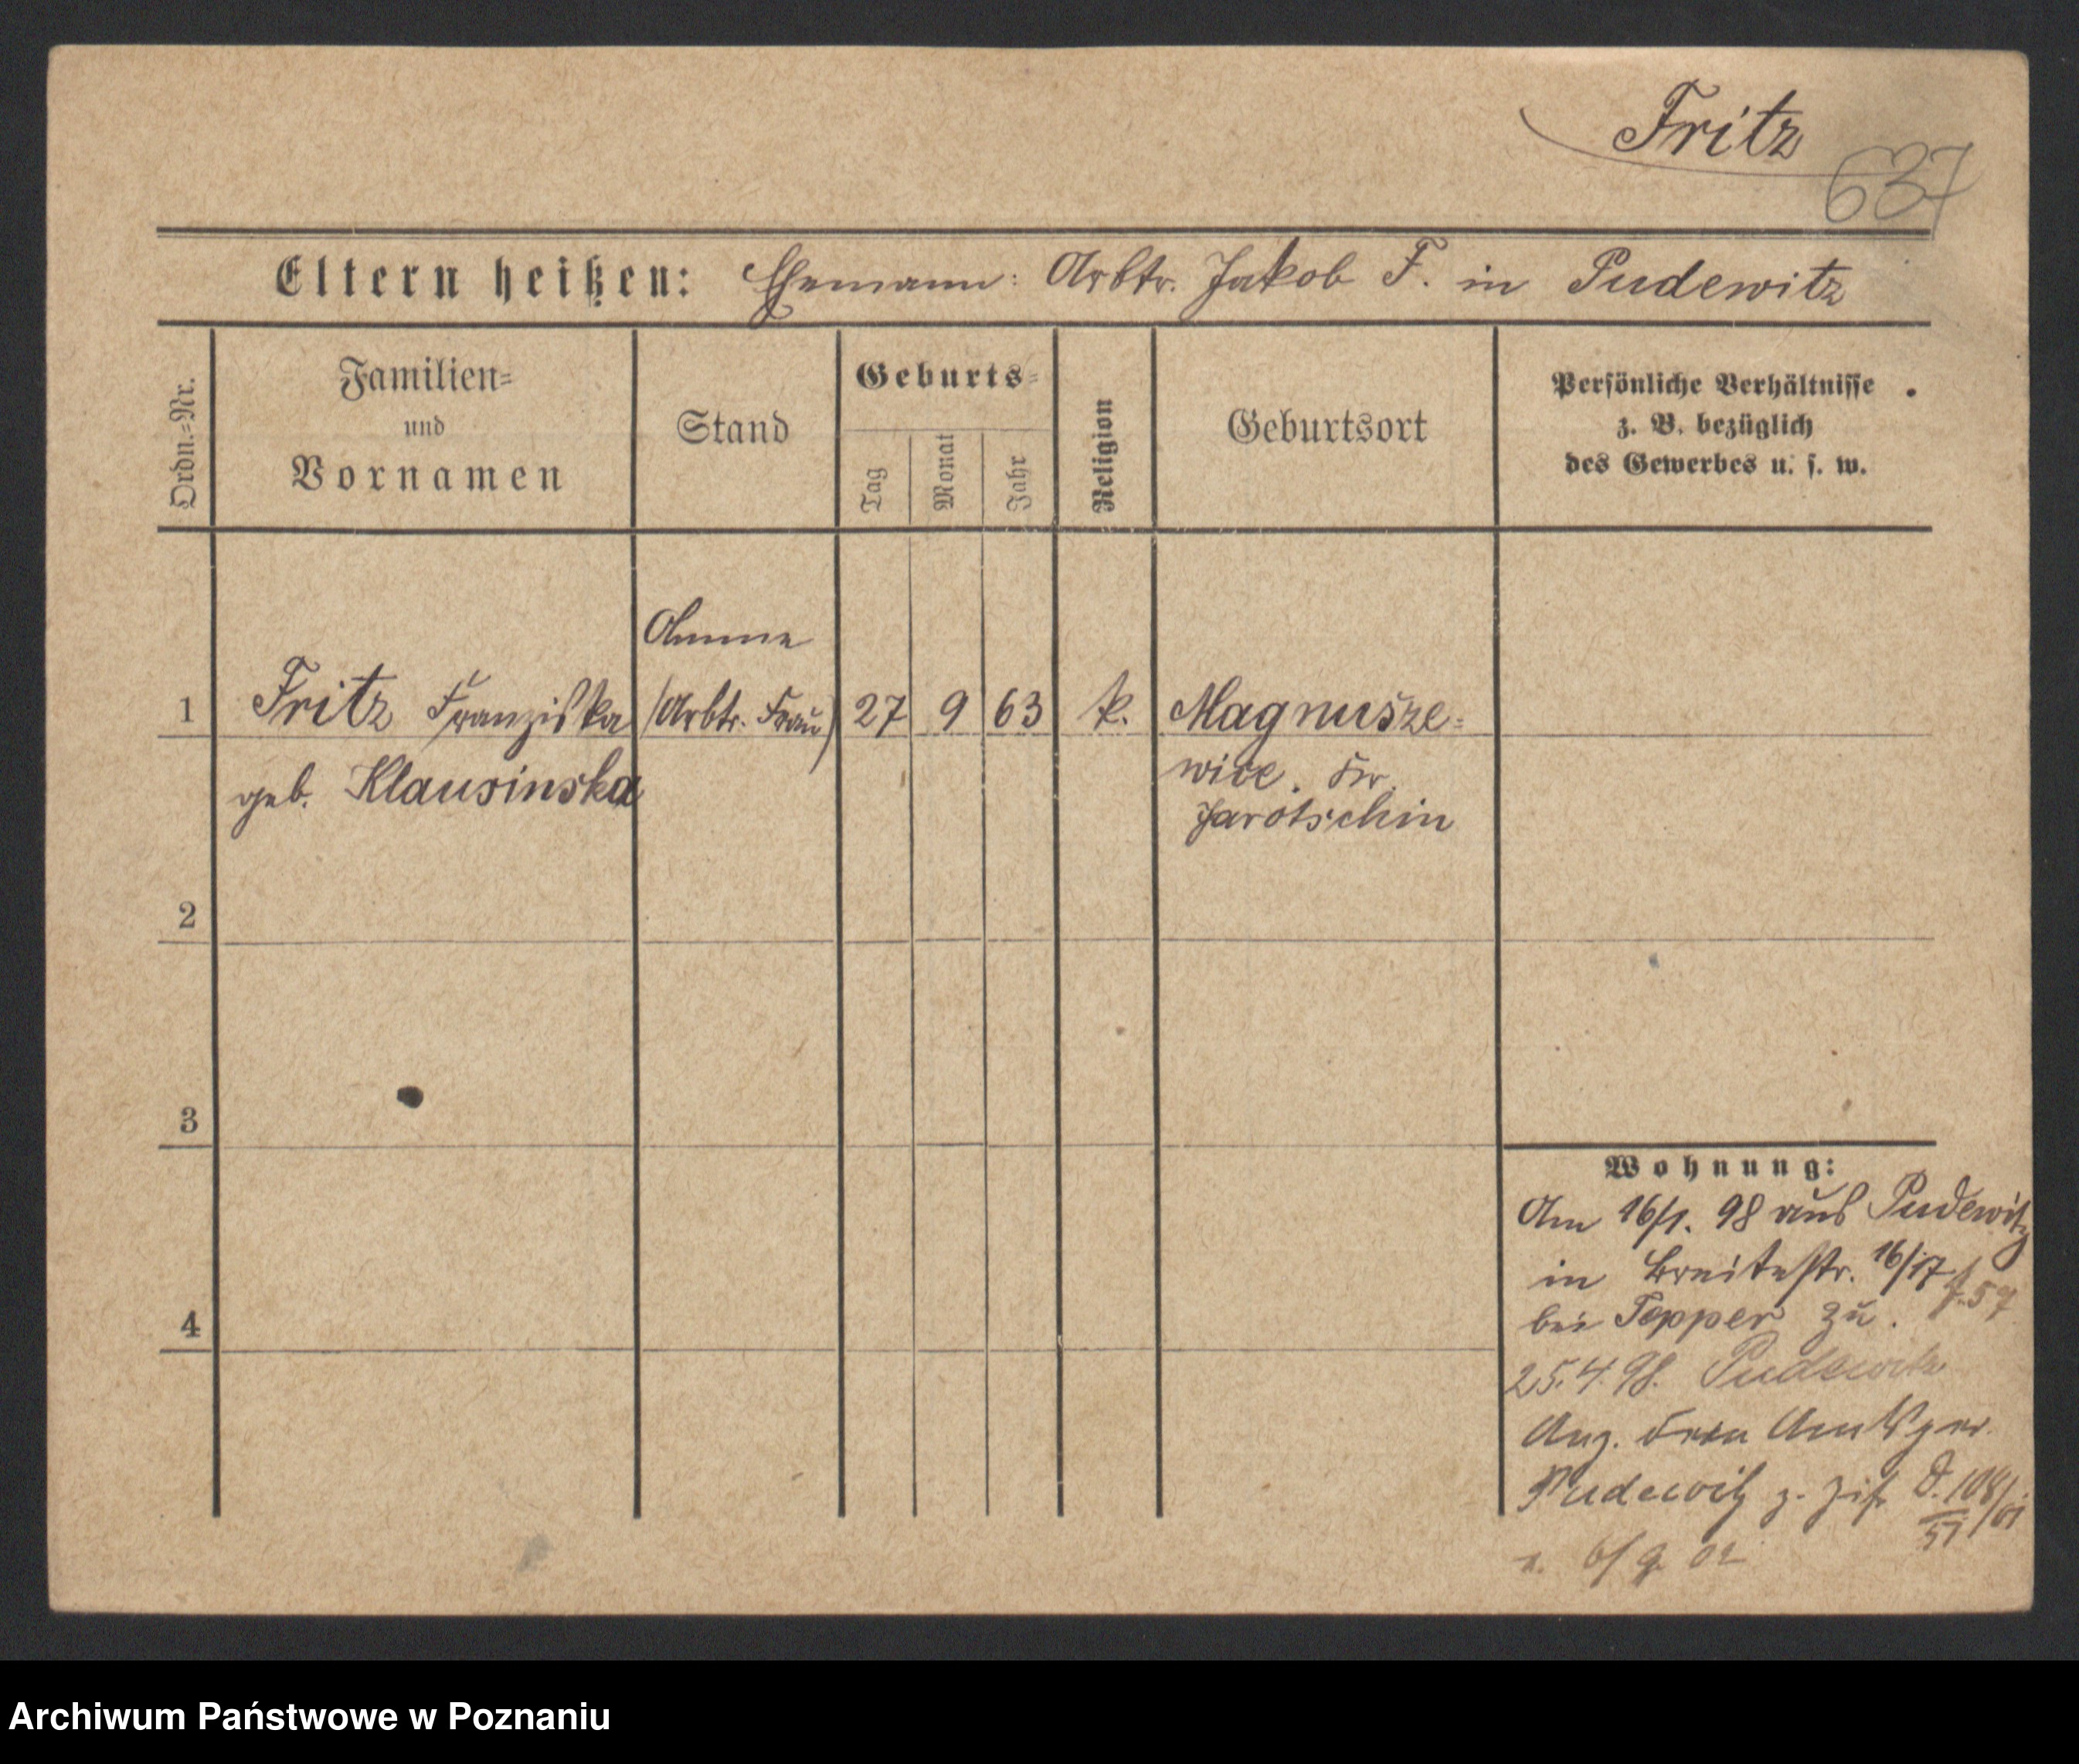 Fritz
637
Eltern heißen: Ehemann: Arbtr. Jakob F. in Pudewitz
Ordn.=Nr.
Familien=
und
Vornamen
Stand
Geburts=
Tag
Monat
Jahr
Religion
Geburtsort
Persönliche Verhältnisse
z. B. bezüglich
des Gewerbes u. s. w.
Amme
1 Fritz Franziska (Arbtr. Frau) 27 9 63 k. Magnusze=
geb. Klausinska wice. Kr.
Jarotschin
2
3
4
Wohnung:
Am 16/1. 98 aus Pudewitz
in Breitestr. 16/17
bei Tepper zu.
25.4.98. Pudewitz
Ang. Amtsger.
Pudewitz z. 108/01
57
6/9 02
Archiwum Państwowe w Poznaniu